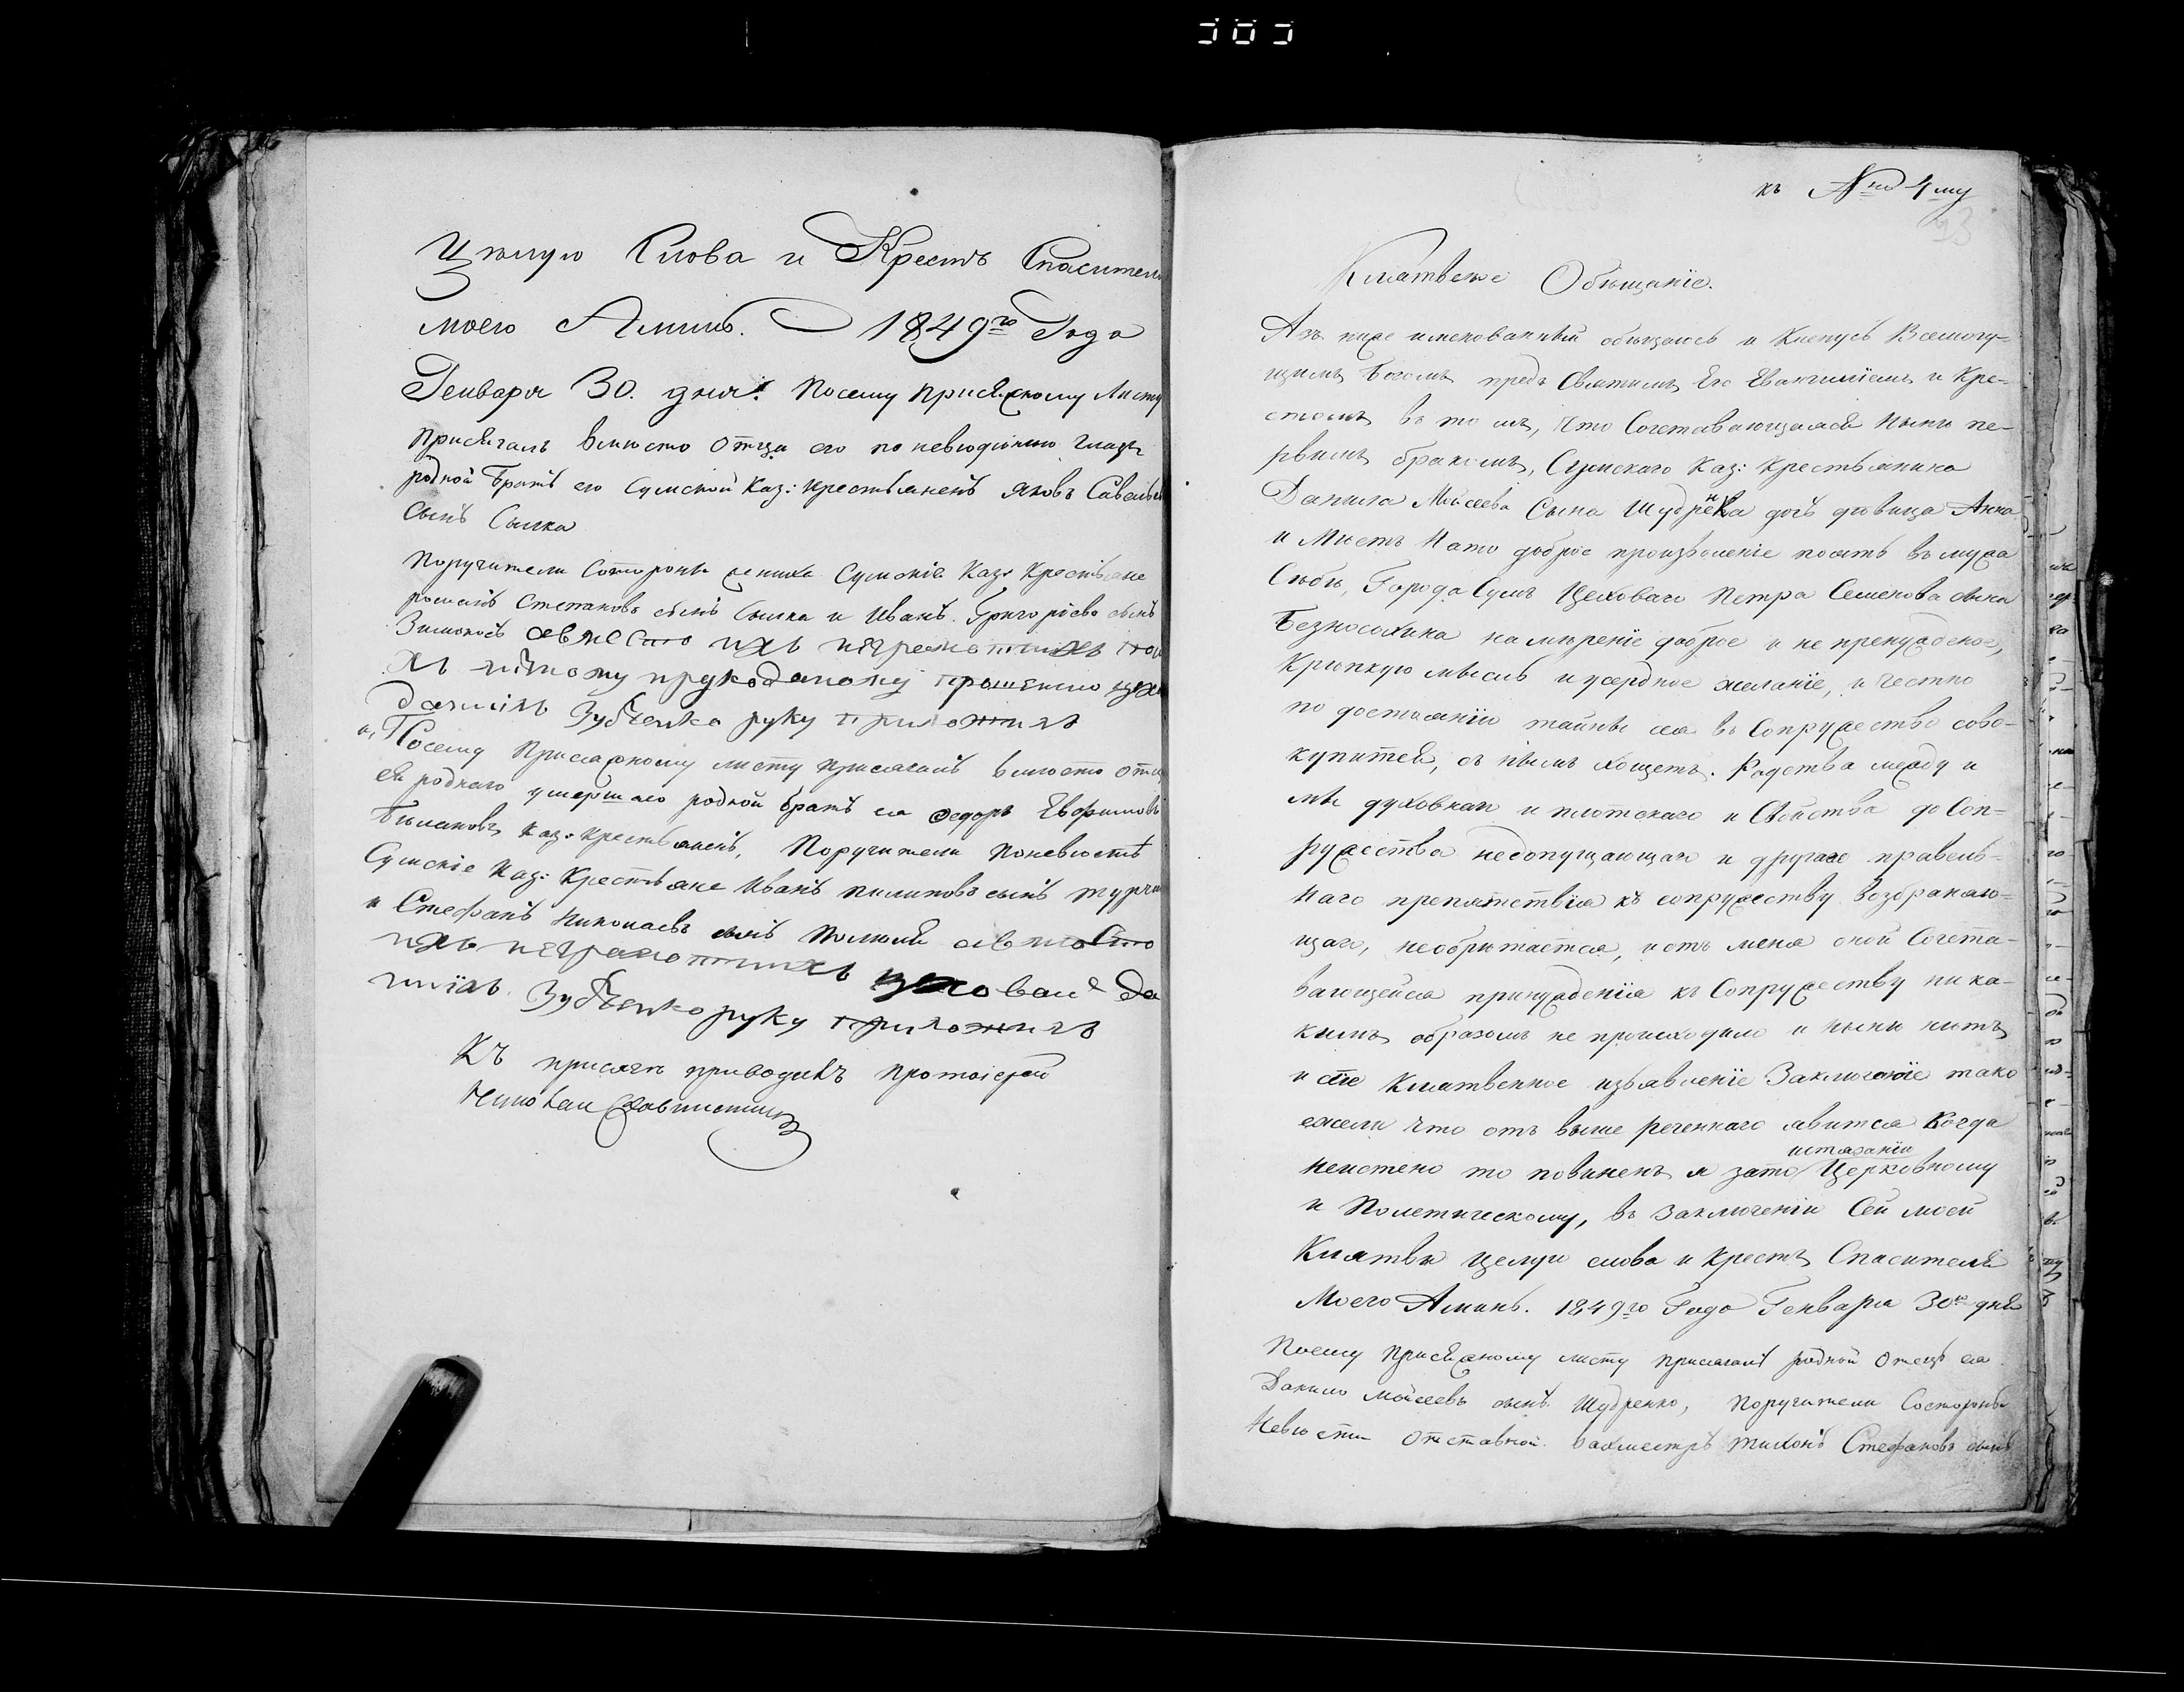 цѣлую Слова и Крестъ Спасителя
моего Аминь. 1849го Года
Генваря 30. дня. Посему присяжному Листу
присягалъ вмѣсто отца его по невидѣнію глазъ
родной братъ его Сумской Каз: крестьянинъ Яковъ Савельевъ
сынъ Сынка
Поручители Состороны жениха Сумскіе Каз: Крестьяне
романъ Степановъ сынъ Сынка и Иванъ Григорьевъ сынъ
авместо ихъ неграмотныхъ
прукоданому прошенію
Данилъ Зубченко руку приложилъ
Посему Присяжному листу присягалъ вмѣсто отца
ея роднаго умершаго родной братъ ея Федоръ Евфимовъ
Каз: крестьянинъ, Поручители Поневѣстѣ
Сумскіе Каз: Крестьяне Иванъ пилиповъ сынъ
и Стефанъ Николаевъ сынъ авместо
ихъ неграмотныхъ цеховай Да
нилъ Зубченко руку приложилъ
Къ присягѣ приводилъ протоіерей
къ №ро 4му
Клятвеное Обѣщаніе.
Азъ ниже именованный обѣщаюсь и Кленусь Всемогу-
щимъ Богомъ предъ Святымъ Его Евангиліемъ и Кре-
стомъ въ томъ, Что Сочетавающаяся Нынѣ пе-
рвымъ бракомъ, Сумскаго Каз: Крестьянина
Данила Мойсеева Сына Щудренка дочь дѣвица Анна
и Мѣетъ Нато доброе произволеніе поять въ мужа
Себѣ, Города Сумъ Цеховаго Петра Семенова сына
намѣреніе доброе и не принужденое,
Крѣпкую мысль и усердное желаніе, и Честно
по достоянію тайны сея въ Сопружество сово-
купится, съ нымъ Хощетъ. Родства между и
мы духовнаго и плотскаго и Свойства до Соп-
ружества недопущающаго и другаго правель-
наго препятствія къ сопружеству возбраняю-
щаго, необрѣтается, и отъ меня оной Сочета-
вающейся принужденія къ Сопружеству ника-
кимъ образомъ не происходило и нынѣ нѣтъ
и сіе Клятвенное изъявленіе Заключаю тако
ежели что отъ выше реченнаго явится Когда
истязанію
неистено то повиненъ я зато Церковному
и Полетическому, въ заключеніи Сей моей
Клятвы целую слова и Крестъ Спасителя
Моего Аминь. 1849го Года Генваря 30го дня
Посему присяжному листу присягалъ родной отецъ ея
Данило Мойсеевъ сынъ Щудренко, Поручители Состороны
Невѣсты отставной вахместръ тихонъ Стефановъ сынъ